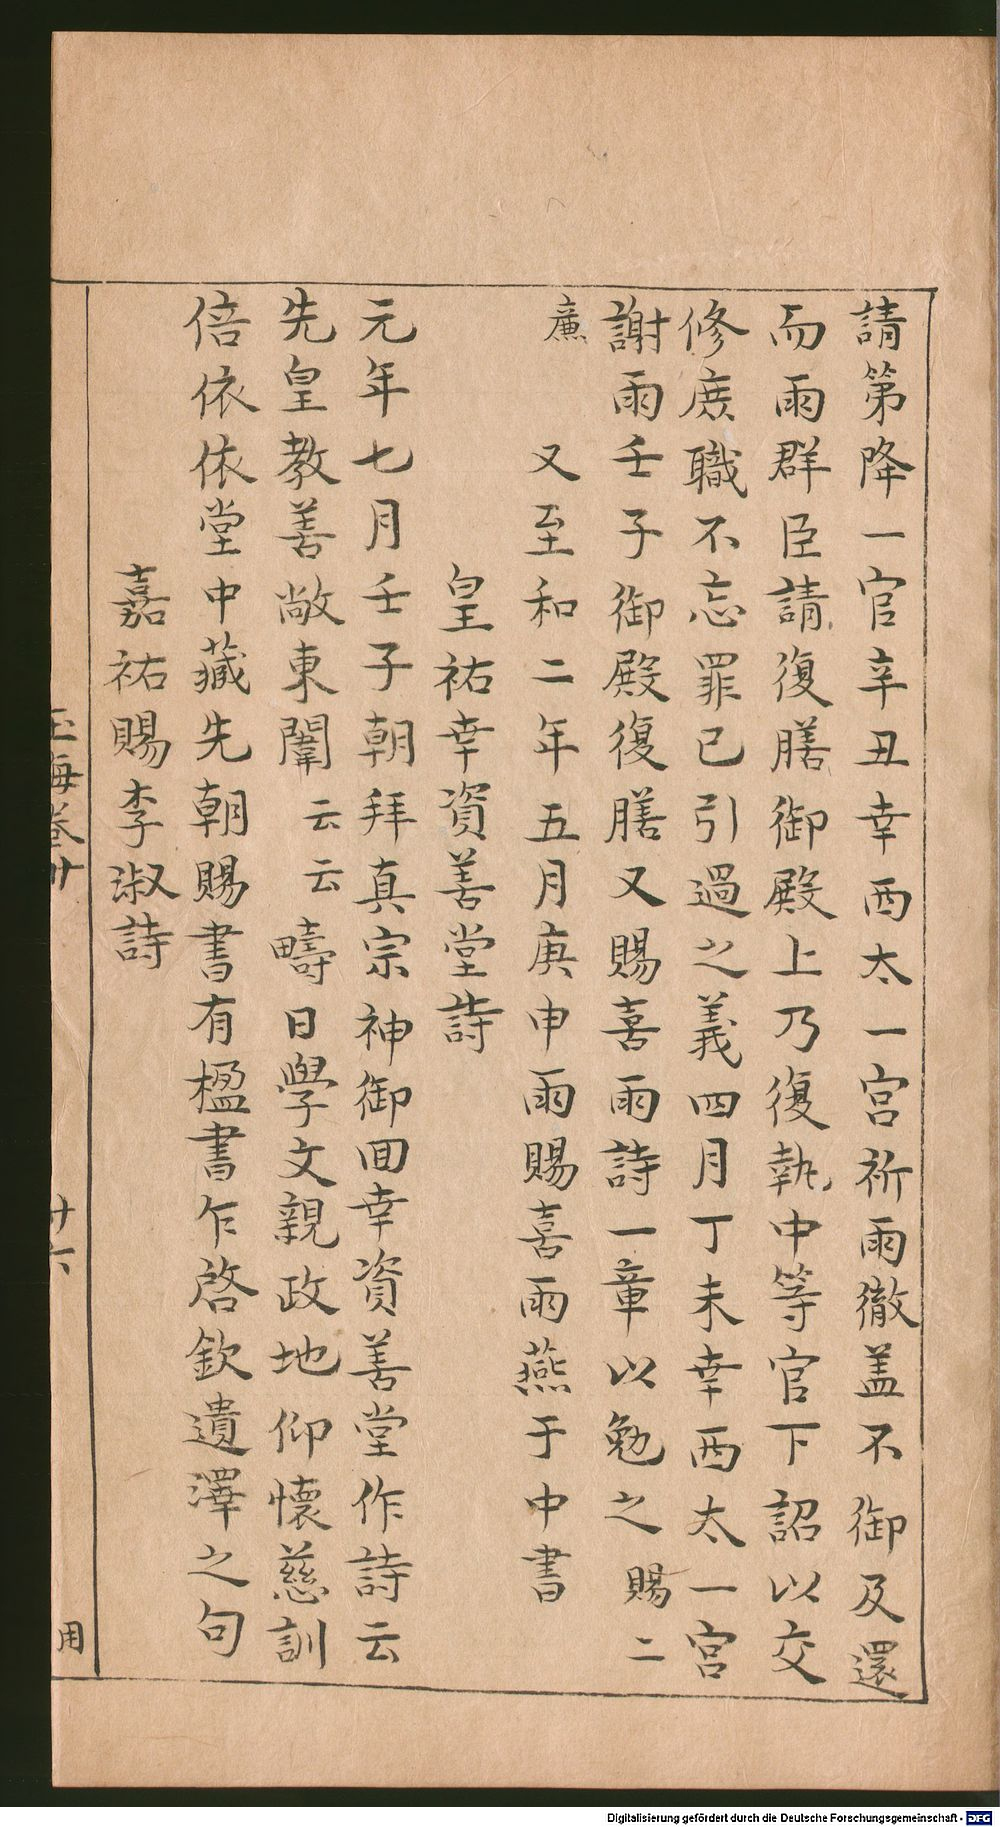 請第降一官辛丑幸西太一宮祈雨徹盖不御及還
而雨群臣請復膳御殿上乃復執中等官下詔以交
修庶職不忘罪已引過之義四月丁未幸西太一宮
謝雨壬子御殿復膳又賜喜雨詩一章以勉之賜二
廡 又至和二年五月庚申雨賜喜雨燕于中書
皇祐幸資善堂詩
元年七月壬子朝拜真宗神御囬幸資善堂作詩云
先皇教善敞東闈云云疇日學文親政地仰懷慈訓
倍依依堂中藏先朝賜書有楹書乍啓欽遺澤之句
嘉祐賜李淑詩
玉海卷廿
廿六
用
Digitalisierung gefördert durch die Deutsche Forschungsgemeinschaft - DFG